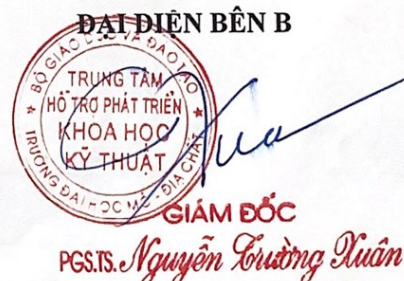 ĐẠI DIỆN BÊN B
BỘ GIÁO DỤC VÀ ĐÀO TẠO
TRUNG TÂM
HỖ TRỢ PHÁT TRIỂN
KHOA HỌC
KỸ THUẬT
TRƯỜNG ĐẠI HỌC MỎ - ĐỊA CHẤT
GIÁM ĐỐC
PGS.TS. Nguyễn Trường Xuân